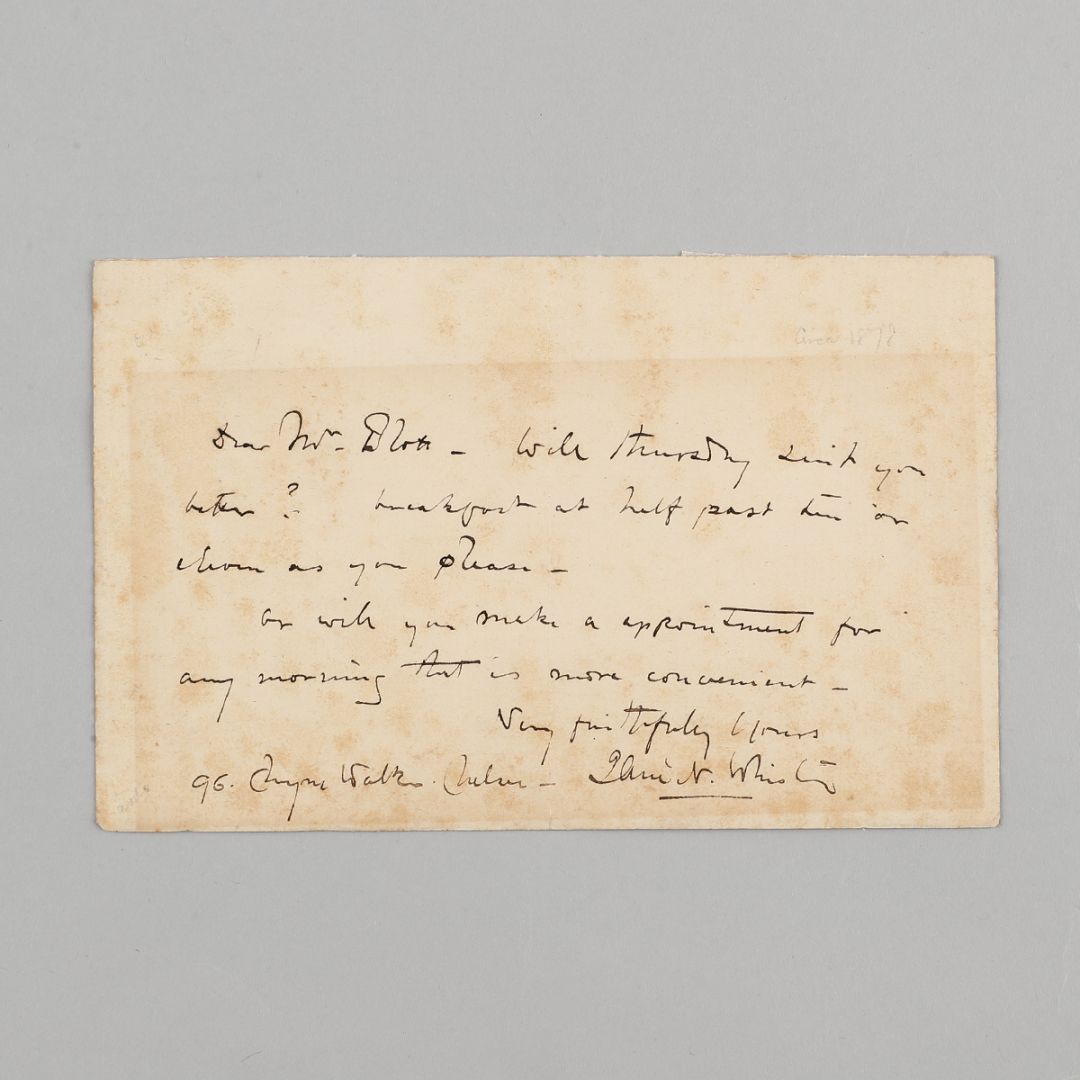 Circa 1878
Dear Mr. Blott - Will Thursday suit you
better? breakfast at half past ten or
eleven as you please -
or will you make a appointment for
any morning that is more convenient -
Very faithfully Yours
96. Cheyne Walk. Chelsea - J. A. McN. Whistler